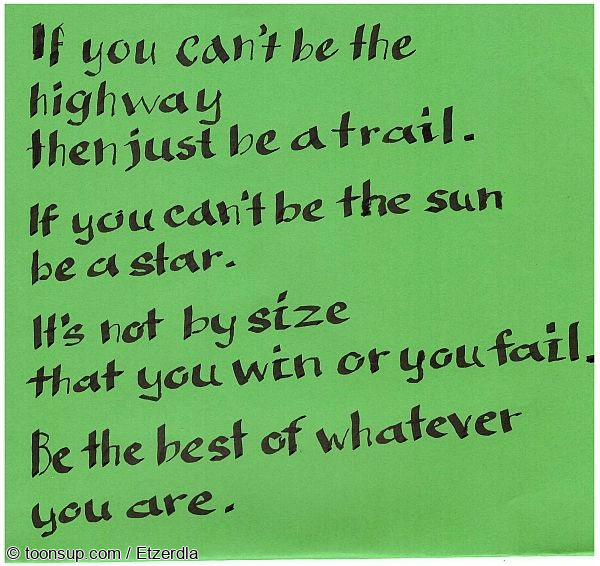 If you can't be the
highway
then just be a trail.
If you can't be the sun
be a star.
It's not by size
that you win or you fail.
Be the best of whatever
you are.
© toonsup.com / Etzerdla